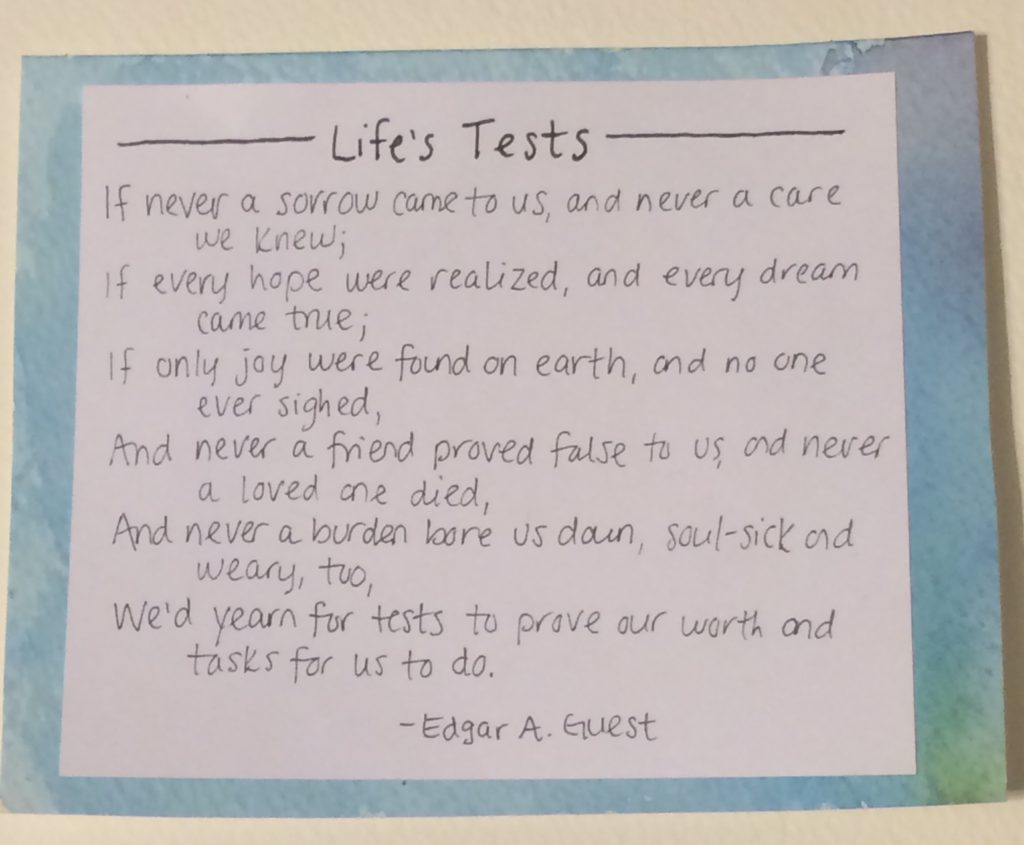 Life's Tests
If never a sorrow came to us, and never a care
we knew;
If every hope were realized, and every dream
came true;
If only joy were found on earth, and no one
ever sighed,
And never a friend proved false to us, and never
a loved one died,
And never a burden bore us down, soul-sick and
weary, too,
We'd yearn for tests to prove our worth and
tasks for us to do.
-Edgar A. Guest